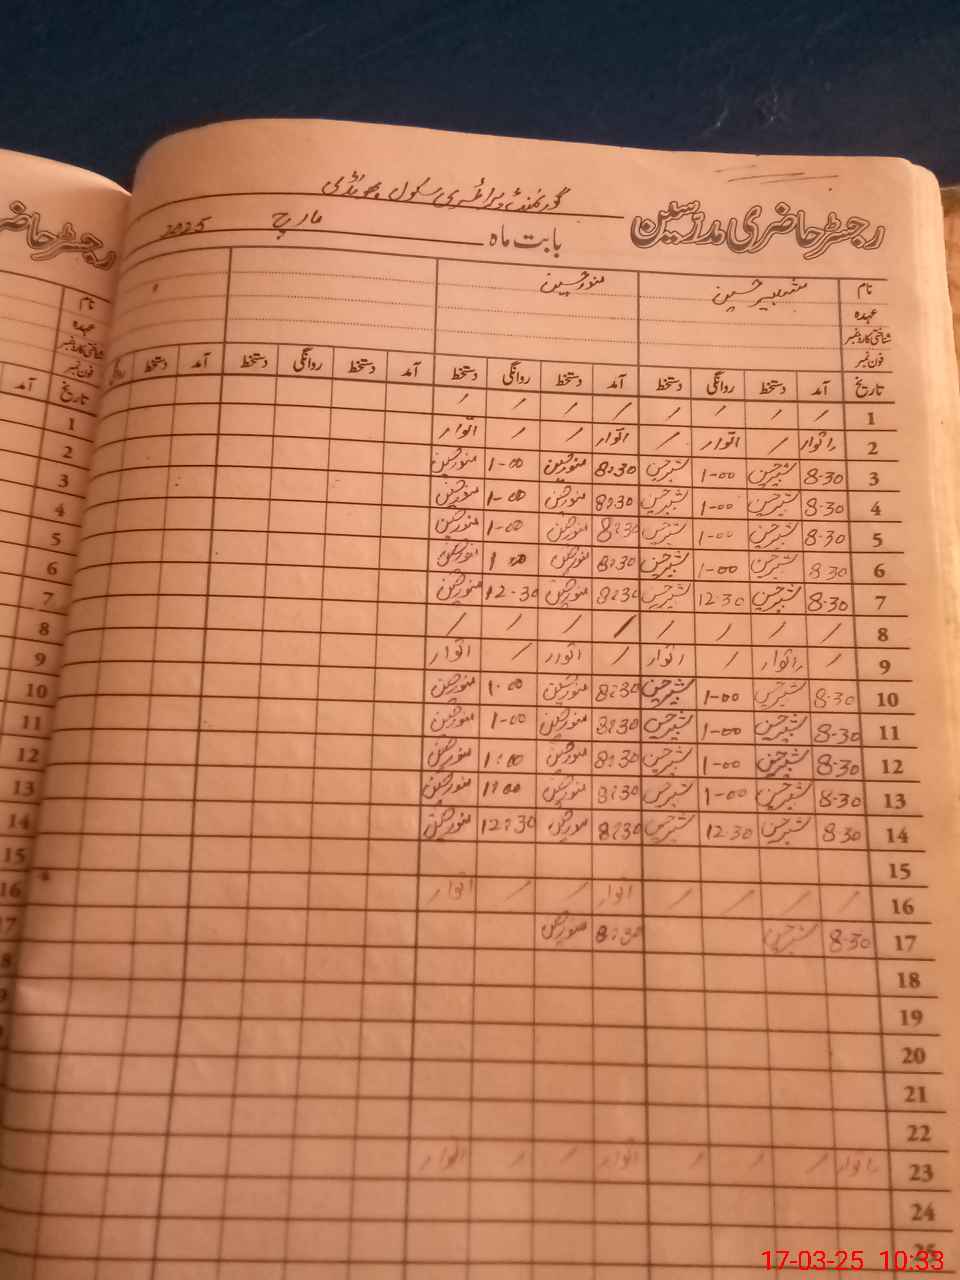 گورنمنٹ پرائمری سکول
رجسٹر حاضری مدرسین
بابت ماہ مارچ 2025
نام شبیر حسین منور حسین
عہدہ
شناختی کارڈ نمبر
فون نمبر
تاریخ آمد دستخط روانگی دستخط آمد دستخط روانگی دستخط آمد دستخط روانگی دستخط آمد دستخط
1 / / / / / / / /
2 اتوار / اتوار / اتوار / / اتوار
3 8-30 شبیر حسین 1-00 شبیر حسین 8:30 منور حسین 1-00 منور حسین
4 8-30 شبیر حسین 1-00 شبیر حسین 8:30 منور حسین 1-00 منور حسین
5 8-30 شبیر حسین 1-00 شبیر حسین 8:30 منور حسین 1-00 منور حسین
6 8-30 شبیر حسین 1-00 شبیر حسین 8:30 منور حسین 1-00 منور حسین
7 8-30 شبیر حسین 12-30 شبیر حسین 8:30 منور حسین 12-30 منور حسین
8 / / / / / / / /
9 / اتوار / اتوار / اتوار / اتوار
10 8-30 شبیر حسین 1-00 شبیر حسین 8:30 منور حسین 1-00 منور حسین
11 8-30 شبیر حسین 1-00 شبیر حسین 8:30 منور حسین 1-00 منور حسین
12 8-30 شبیر حسین 1-00 شبیر حسین 8:30 منور حسین 1:00 منور حسین
13 8-30 شبیر حسین 1-00 شبیر حسین 8:30 منور حسین 1:00 منور حسین
14 8-30 شبیر حسین 12-30 شبیر حسین 8:30 منور حسین 12:30 منور حسین
15
16 / / / / اتوار / / اتوار
17 8-30 شبیر حسین 8:30 منور حسین
18
19
20
21
22
23 اتوار / / / اتوار / / اتوار
24
25
17-03-25 10:33